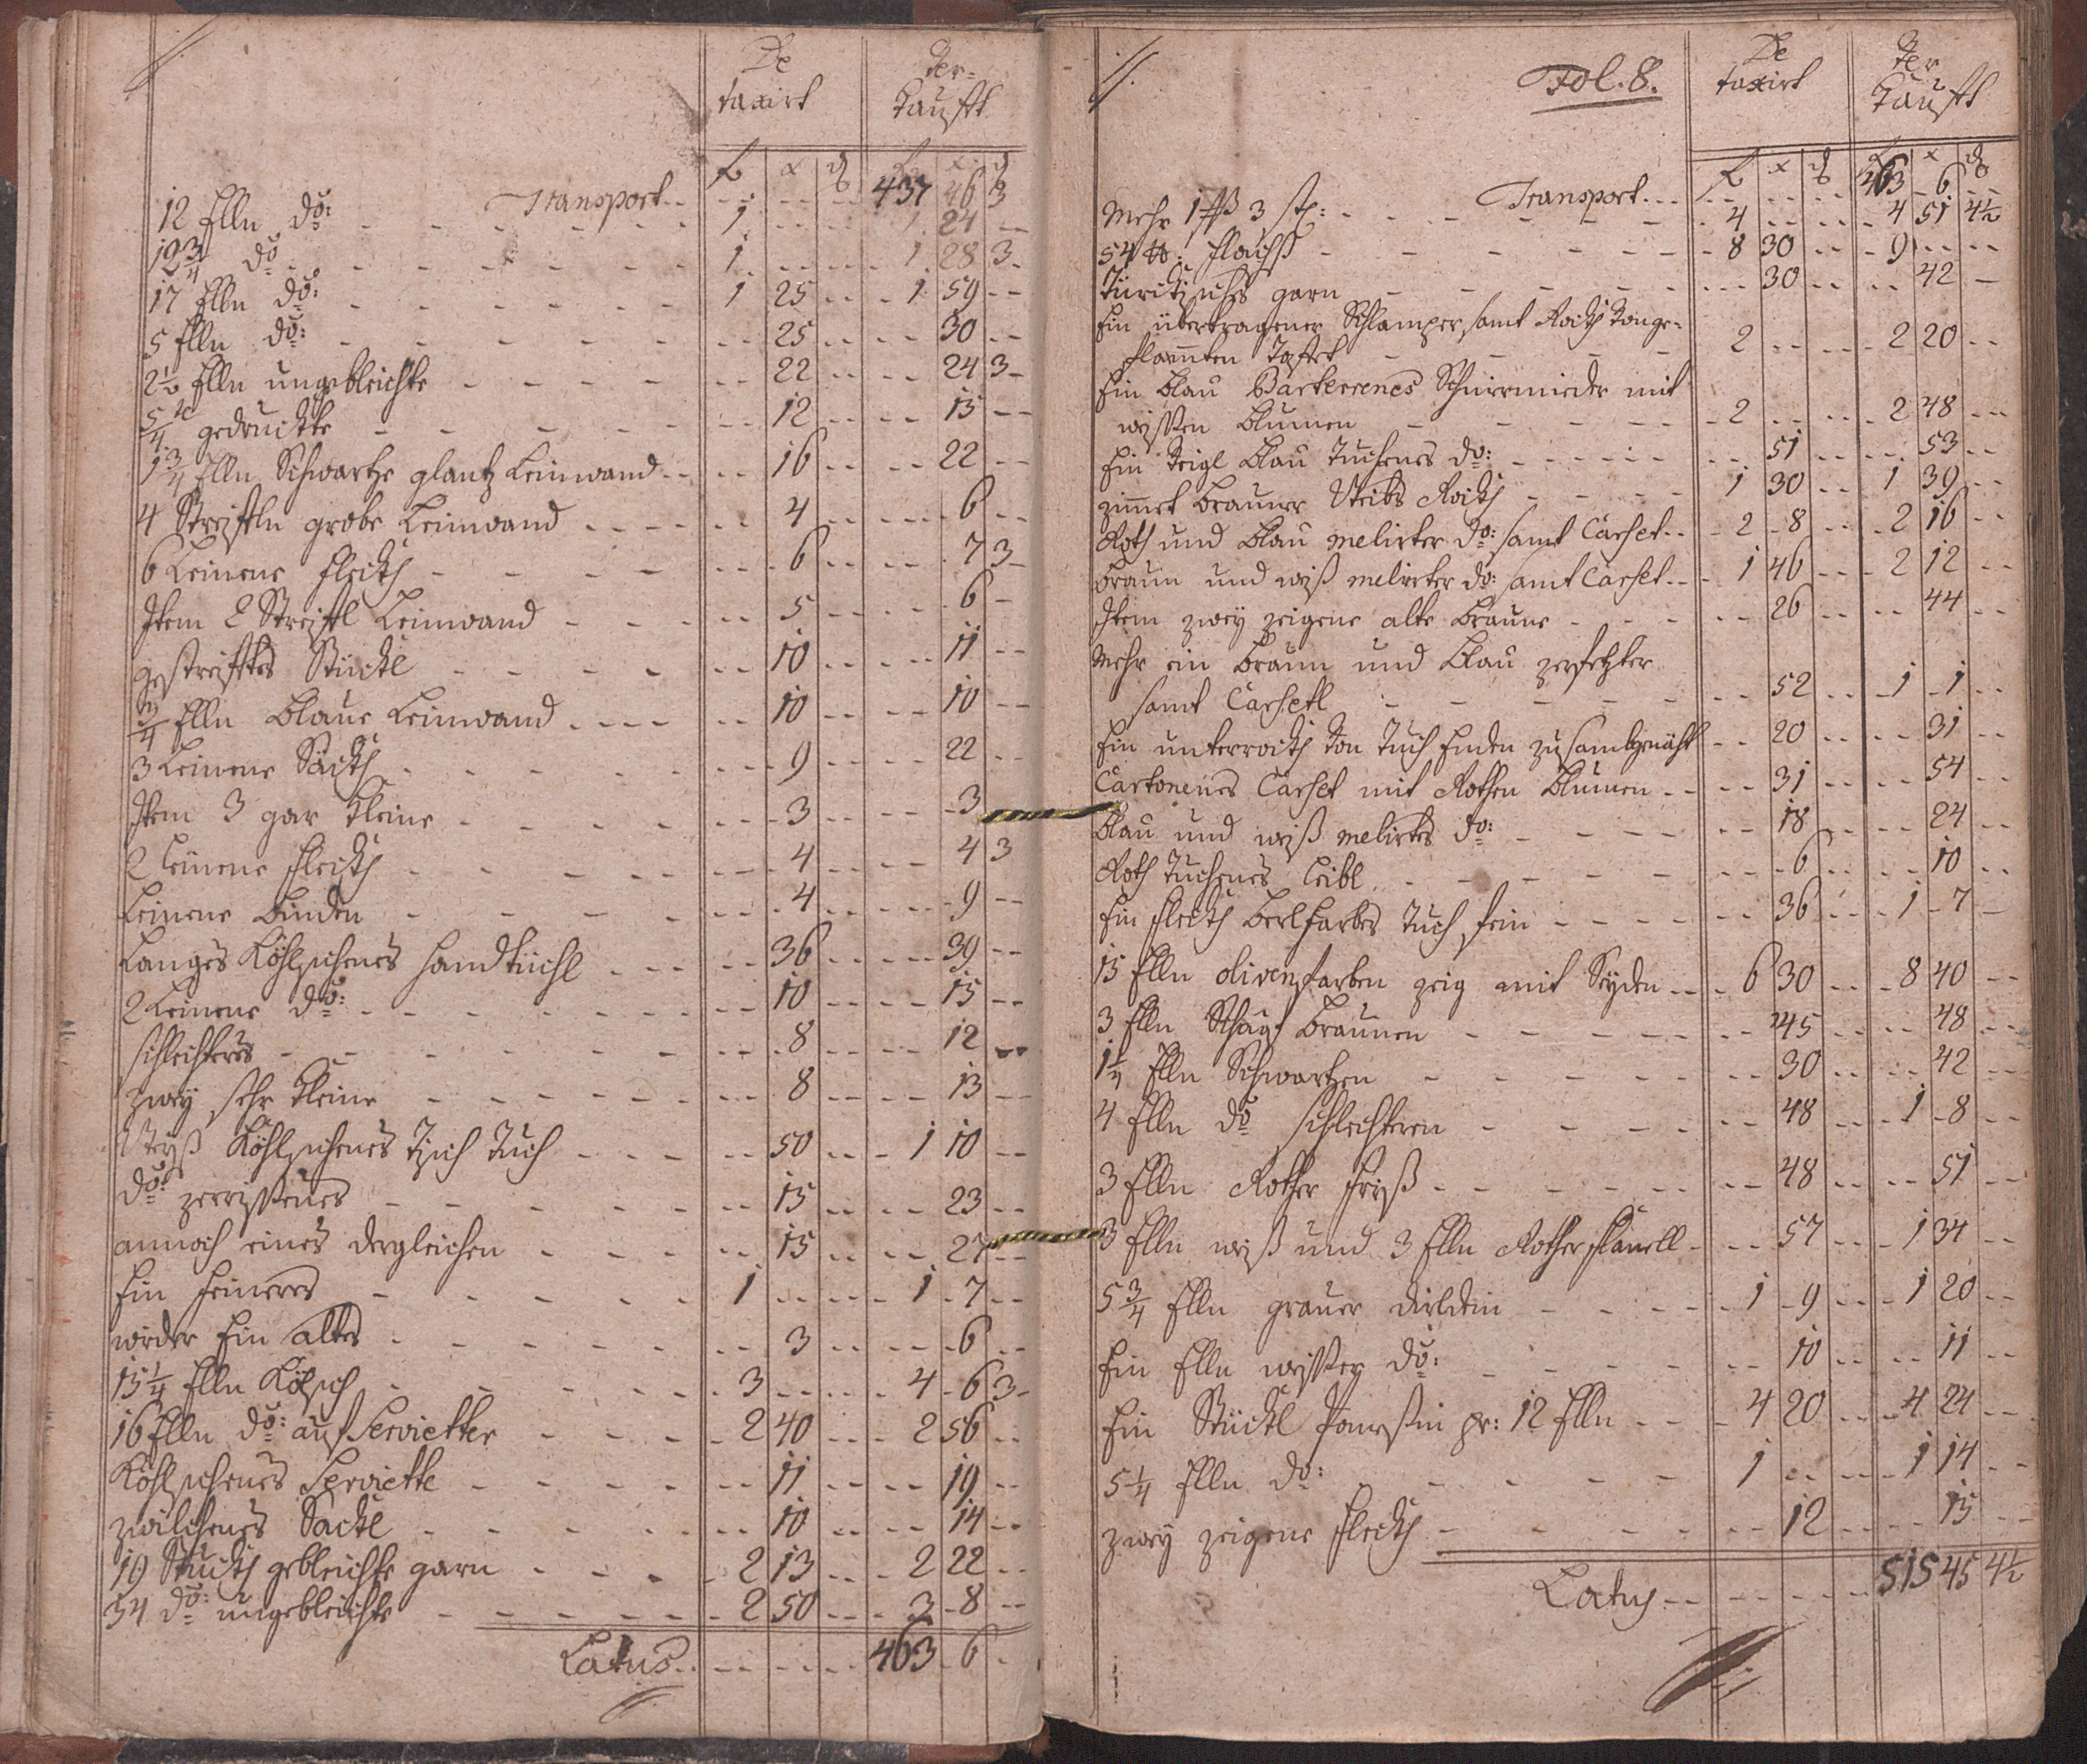 De Ver=
taxirt kaufft
f x ₰ f x ₰
Transport 437 46 3
12 Elln do: 1 1 24
12¾ do 1 1 28 3
17 Elln do: 1 25 1 59
5 Elln do: 25 30
2½ Elln ungebleichte 22 24 3
5/4 te gedruckte 12 15
1¾ Elln Schwartze glantz Leinwand 16 22
4 Streiffln grobe Leinwand 4 6
6 Leinene Fleckh 6 7 3
Item 2 Streiffl Leinwand 5 6
gestreifftes Stückl 10 11
¾ Elln blaue Leinwand 10 10
3 Leinene Säckh 9 22
Item 3 gar kleine 3 3
2 Leinene Fleckh 4 4 3
Leinene Binden 4 9
Langes Köhlschenes Handtüchl 36 39
2 Leinene do: 10 15
schlechteres 8 12
zwey sehr kleine 8 13
Weyß Köhlschenes Tisch Tuch 50 1 10
do: zerrissenes 15 23
annoch eines dergleichen 15 27
Ein feineres 1 1 7
wieder Ein altes 3 6
15¼ Elln Kölsch 3 4 6 3
16 Elln do: auf Servietter 2 40 2 56
Köhlschenes Serviette 11 19
zwilchenes Säckl 10 14
19 Stückh gebleichte garn 2 13 2 22
34 do: ungebleichte 2 50 3 8
Latus 463 6
Fol. 8. De Ver
taxirt kaufft
f x ₰ f x ₰
Transport 463 6
Mehr 1 3 st: 4 4 51 4½
54 ℔: Flachß 8 30 9
garn 30 42
Ein übertragener Schlamper samt Rockh von ge=
flammten Tafet 2 2 20
Ein blau Barterrenes Schnirmieder mit
weissen Blumen 2 2 48
Ein blau Tuchenes do: 51 53
zimmet brauner Weibs Rockh 1 30 1 39
Roth und blau melirter do: samt Carset 2 8 2 16
braun und weiß melirter do: samt Carset 1 46 2 12
Item zwey zeigene alte braune 26 44
Mehr ein braun und blau zerfetzter
samt Carsetl 52 1 1
Ein unterrockh von Tuch Enden zusamgenäht 20 31
Cartonenes Carset mit Rothen Blumen 31 54
blau und weiß melirtes do: 18 24
Roth Tuchenes Leibl 6 10
Ein Fleckh berlfarbes Tuch fein 36 1 7
15 Elln olivenfarben zeig mit Seyden 6 30 8 40
3 Elln braunen 45 48
1¼ Elln Schwartzen 30 42
4 Elln do schlechteren 48 1 8
3 Elln Rother Frieß 48 51
3 Elln weiß und 3 Elln Rother Flanell 57 1 34
5¾ Elln grauer 1 9 1 20
Ein Elln weisser do: 10 11
Ein Stückl pr: 12 Elln 4 20 4 24
5¼ Elln do: 1 1 14
zwey zeigene Fleckh 12 15
Latus 515 45 4½